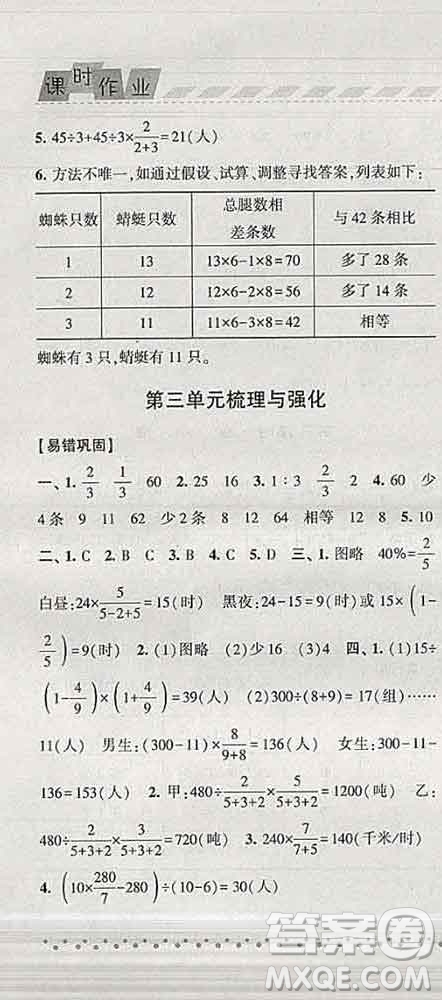 课时作业
5. 45÷3+45÷3×2/(2+3)=21(人)
6. 方法不唯一,如通过假设、试算、调整寻找答案,列表如下:
蜘蛛只数 蜻蜓只数 总腿数相差条数 与 42 条相比
1 13 13×6-1×8=70 多了 28 条
2 12 12×6-2×8=56 多了 14 条
3 11 11×6-3×8=42 相等
蜘蛛有 3 只,蜻蜓有 11 只。
第三单元梳理与强化
【易错巩固】
一、1. 2/3 1/3 60 2. 25 16 3. 1∶3 2/3 2 4. 60 少
4条 9 11 62 少2 8 12 64 相等 12 8 5. 10
二、1. C 2. B 3. C 4. C 5. D 三、1. 图略 40%=2/5
白昼:24×5/(5-2+5)=15(时) 黑夜:24-15=9(时)或15×(1-
2/5)=9(时) 2. (1)图略 (2)少16 (3)4 四、1. (1)15÷
(1-4/9)×(1+4/9)=39(人) (2)300÷(8+9)=17(组)……
11(人) 男生:(300-11)×8/(9+8)=136(人) 女生:300-11-
136=153(人) 2. 甲:480÷2/(5+3+2)×5/(5+3+2)=1200(吨) 乙:
480÷2/(5+3+2)×3/(5+3+2)=720(吨) 3. 240×7/(7+5)=140(千米/时)
4. (10×280/7-280)÷(10-6)=30(人)
答案卷
MXQE.COM